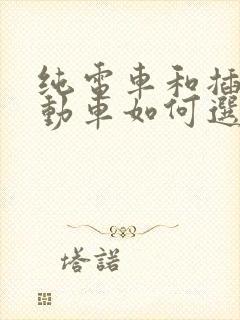 纯電車和插
動車如何選
塔諾